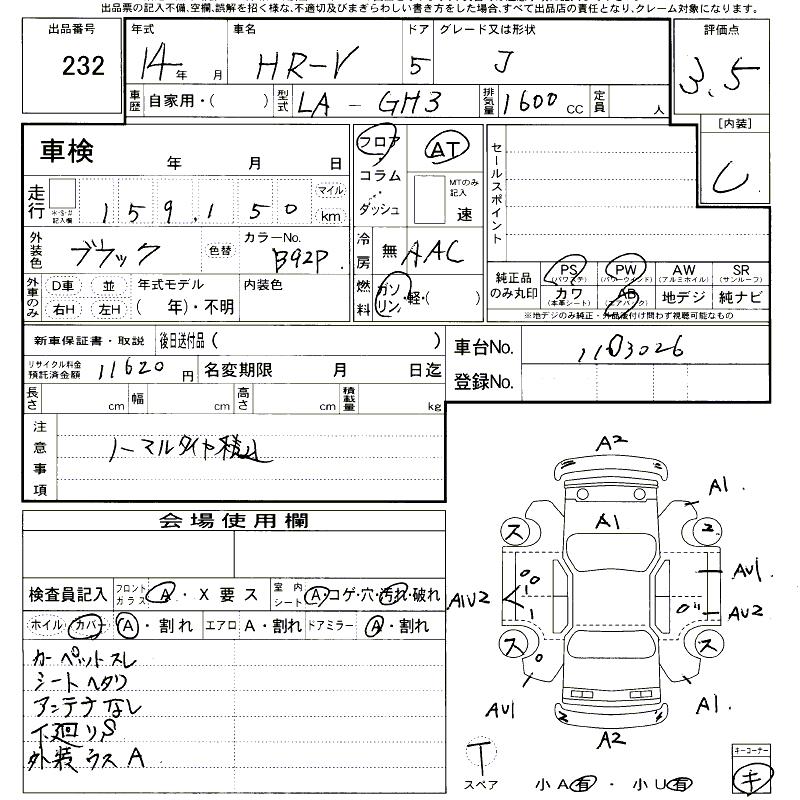 出品票の記入不備、空欄、誤解を招く様な、不適切及びまぎらわしい書き方をした場合、すべて出品店の責任となり、クレーム対象になります。
出品番号 232
年式 14年 月 車名 HR-V ドア 5 グレード又は形状 J
評価点 3.5
車歴 自家用・( ) 型式 LA-GH3 排気量 1600 CC 定員 人
[内装] C
車検 年 月 日
フロア コラム ダッシュ
AT
MTのみ記入 速
セールスポイント
走行 ※・$・# 記入欄 159,150 マイル km
外装色 ブラック 色替 カラーNo. B92P
冷房 無 AAC
外車のみ D車 並 右H 左H 年式モデル ( 年)・不明 内装色
燃料 ガソリン・軽・( )
純正品のみ丸印 PS (パワステ) PW (パワーウインド) AW (アルミホイル) SR (サンルーフ)
カワ (本革シート) AB (エアバック) 地デジ 純ナビ
※地デジのみ純正・外品後付け問わず視聴可能なもの
新車保証書・取説 後日送付品( )
車台No. 1103026
リサイクル料金預託済金額 11620 円 名変期限 月 日迄
登録No.
長さ cm 幅 cm 高さ cm 積載量 kg
注意事項 ノーマルタイヤ積込
会場使用欄
検査員記入 フロントガラス A・X要ス 室内シート A コゲ・穴・汚れ・破れ
ホイル カバー A・割れ エアロ A・割れ ドアミラー A・割れ
カーペットスレ
シートヘタリ
アンテナなし
下廻りS
外装ウスA
A2
A1
A1
ス
ス
AU1
A1U2
AU2
ス
ス
AU1
A1
A2
T
スペア
小A有・小U有
キーコーナー
キ